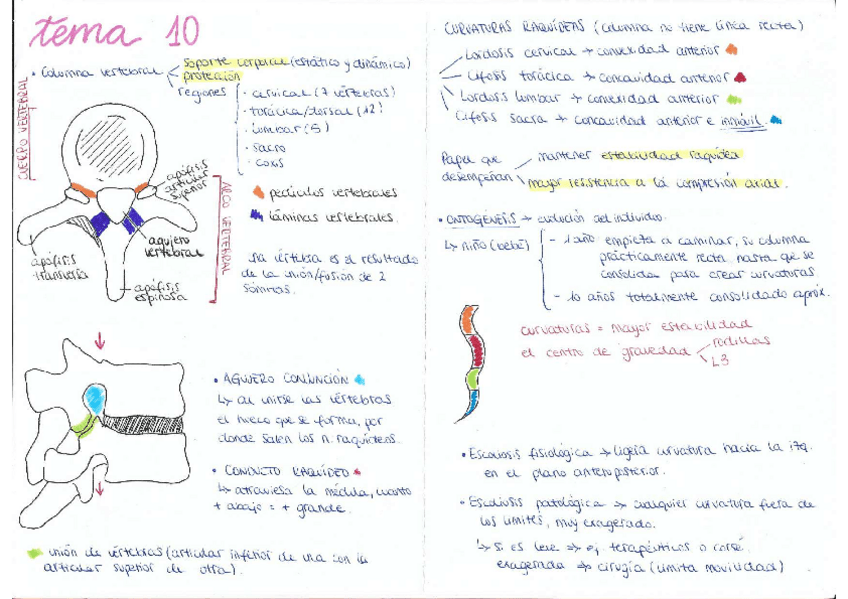 tema 10
• Columna vertebral
soporte corporal (estático y dinámico)
protección
regiones
· cervical (7 vértebras)
· torácica/dorsal (12)
· lumbar (5)
· sacro
· coxis
CUERPO VERTEBRAL
apófisis
articular
superior
ARCO VERTEBRAL
agujero
vertebral
apófisis
transversa
apófisis
espinosa
pedículos vertebrales
láminas vertebrales.
una vértebra es el resultado
de la unión/fusión de 2
somitas.
• AGUJERO CONJUNCIÓN
↳ al unirse las vértebras
el hueco que se forma, por
donde salen los n. raquídeos.
• CONDUCTO RAQUÍDEO
↳ atraviesa la médula, cuanto
+ abajo = + grande.
unión de vértebras (articular inferior de una con la
articular superior de otra).
· CURVATURAS RAQUÍDEAS (columna no tiene línea recta)
Lordosis cervical → convexidad anterior
Cifosis torácica → concavidad anterior
Lordosis lumbar → convexidad anterior
Cifosis sacra → concavidad anterior e inmóvil.
Papel que
desempeñan
mantener estabilidad raquídea
mayor resistencia a la compresión axial.
• ONTOGÉNESIS → evolución del individuo.
↳ niño (bebé)
- 1 año empieza a caminar, su columna
prácticamente recta hasta que se
consolida para crear curvaturas
- 10 años totalmente consolidado aprox.
curvaturas = mayor estabilidad
el centro de gravedad
rodillas
L3
• Escoliosis fisiológica → ligera curvatura hacia la izq.
en el plano anteroposterior.
• Escoliosis patológica → cualquier curvatura fuera de
los límites, muy exagerado.
↳ si es leve → ej. terapéuticos o corsé.
exagerada → cirugía (limita movilidad)